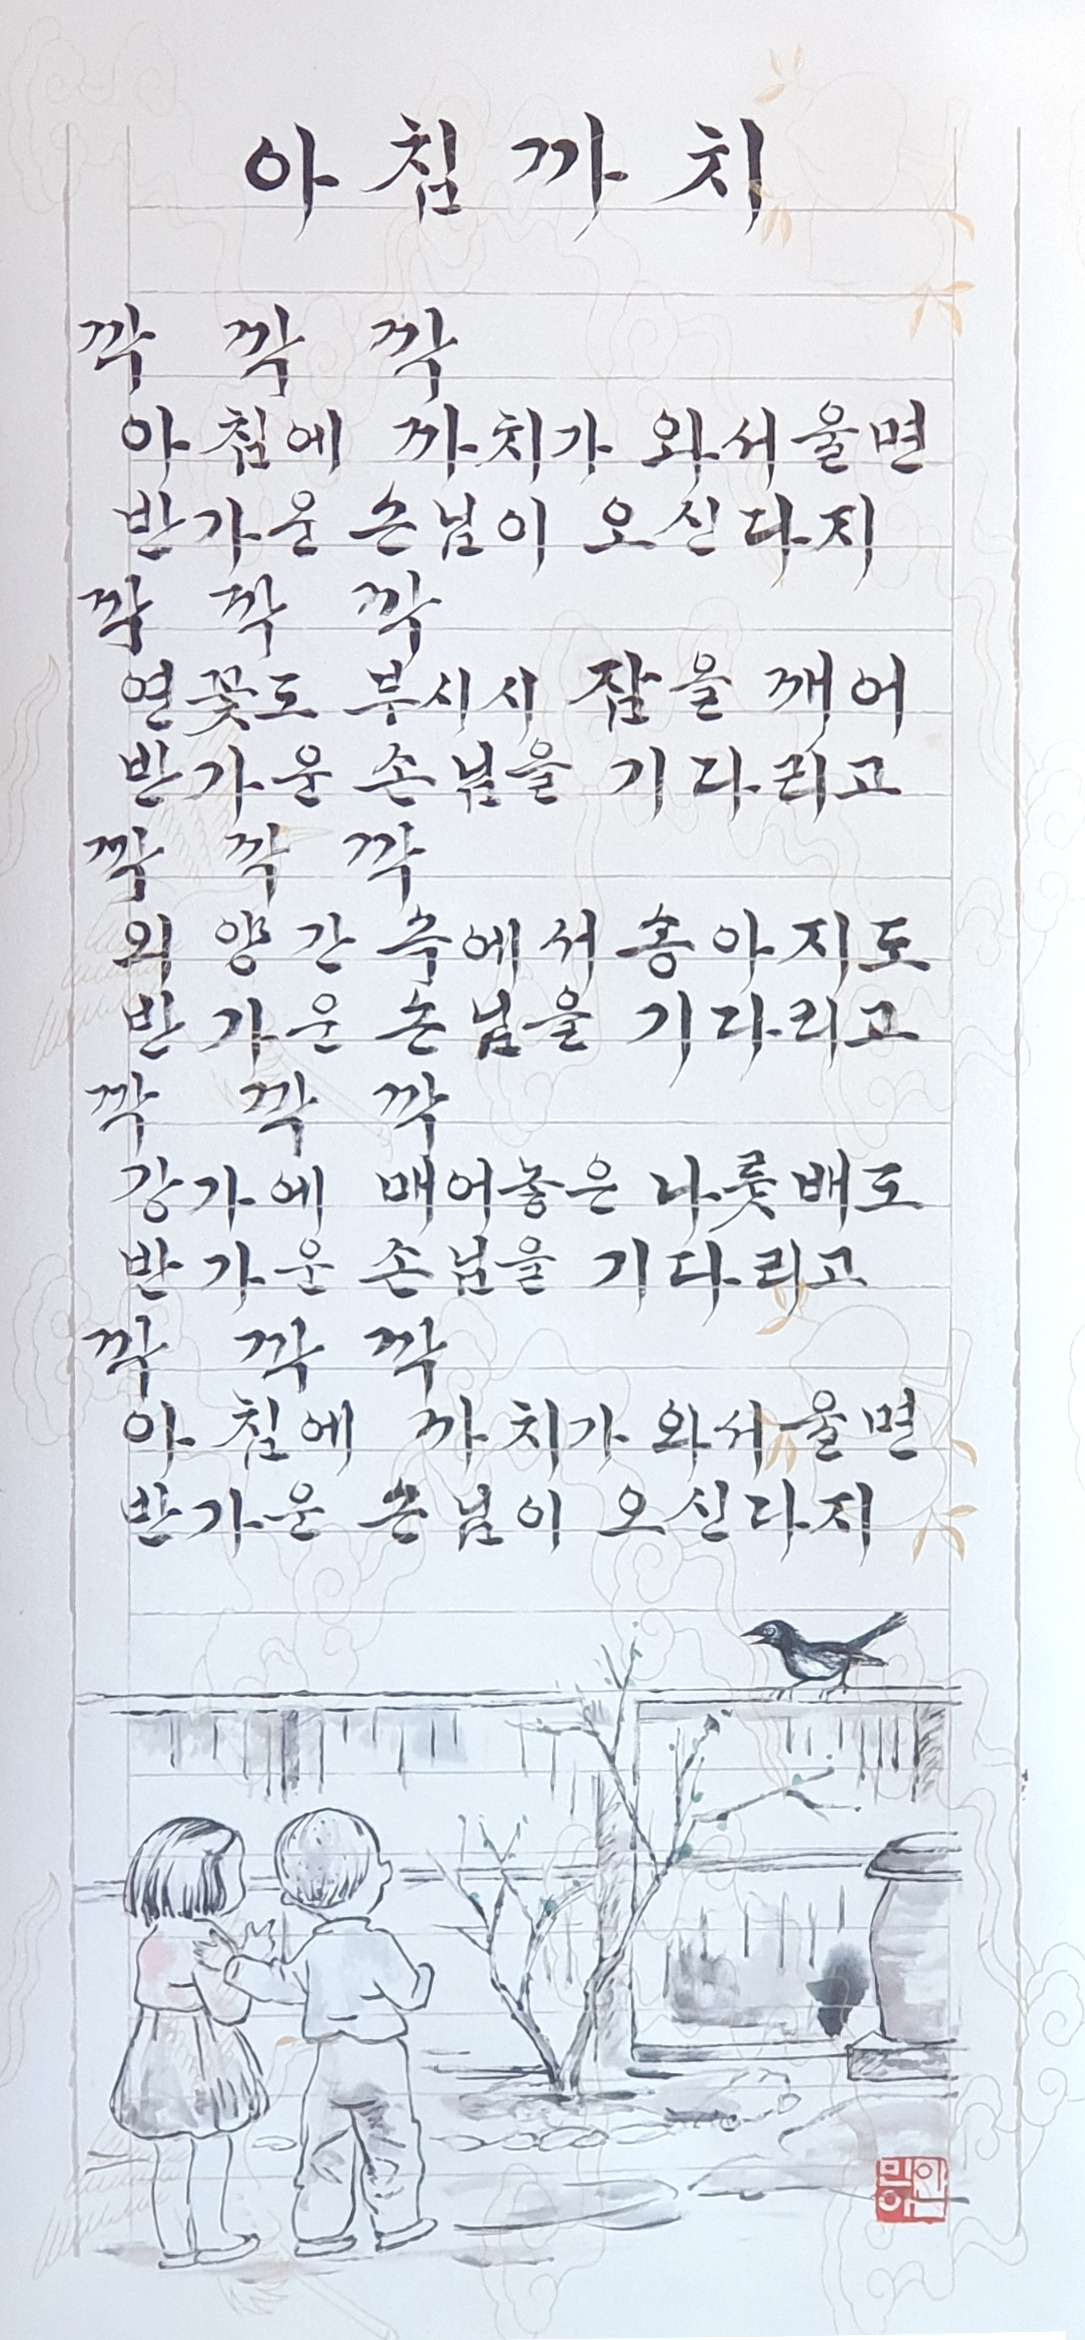 아침까치
깍 깍 깍
아침에 까치가 와서울면
반가운 손님이 오신다지
깍 깍 깍
연꽃도 부시시 잠을 깨어
반가운 손님을 기다리고
깍 깍 깍
외양간 속에서 송아지도
반가운 손님을 기다리고
깍 깍 깍
강가에 매어놓은 나룻배도
반가운 손님을 기다리고
깍 깍 깍
아침에 까치가 와서울면
반가운 손님이 오신다지